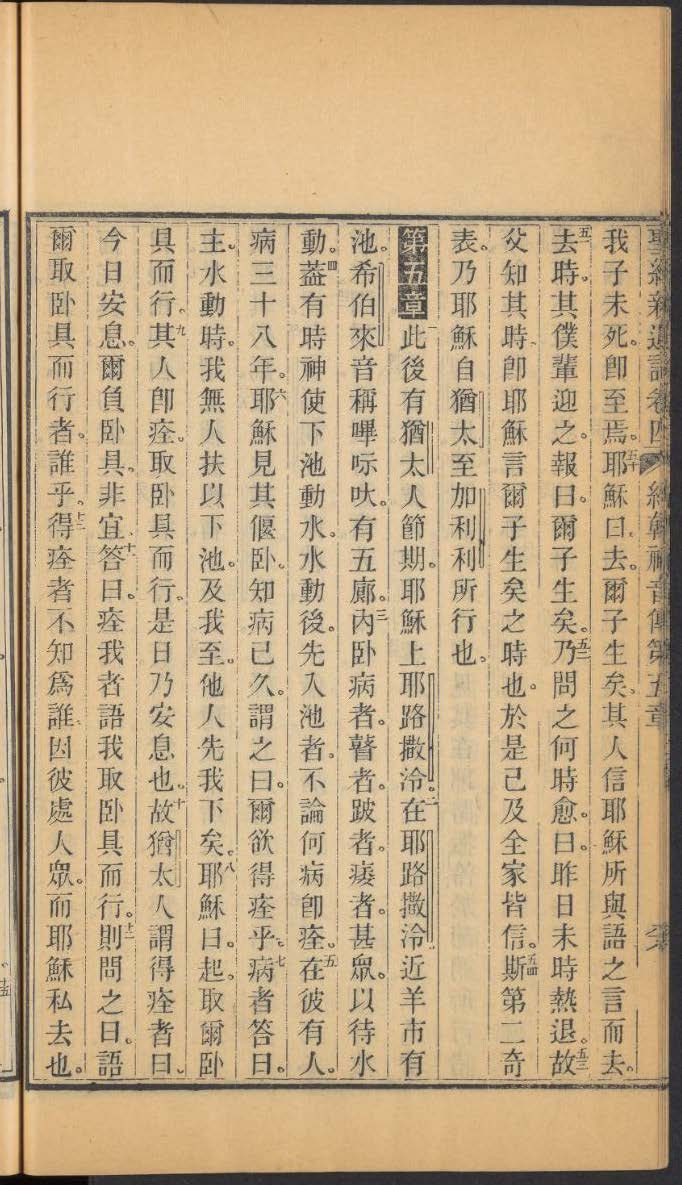 聖經新遺詔卷四 約翰福音傳第五章
我子未死。卽至焉。五十耶穌曰。去。爾子生矣。其人信耶穌所與語之言而去。
五一去時。其僕輩迎之。報曰。爾子生矣。五二乃問之何時愈。曰。昨日未時熱退。五三故
父知其時、卽耶穌言爾子生矣之時也。於是己及全家皆信。五四斯第二奇
表。乃耶穌自猶太至加利利所行也。
第五章 一此後有猶太人節期。耶穌上耶路撒冷。二在耶路撒冷近羊市有
池。希伯來音稱嗶𠵽吠。有五廊。三內卧病者。瞽者。跛者。痿者。甚眾。以待水
動。四葢有時神使下池動水。水動後。先入池者。不論何病卽痊。五在彼有人。
病三十八年。六耶穌見其偃卧。知病已久。謂之曰。爾欲得痊乎。七病者答曰。
主。水動時。我無人扶以下池。及我至。他人先我下矣。八耶穌曰。起。取爾卧
具而行。九其人卽痊。取卧具而行。是日乃安息也。十故猶太人謂得痊者曰。
今日安息。爾負卧具。非宜。十一答曰。痊我者語我取卧具而行。十二則問之曰。語
爾取卧具而行者。誰乎。十三得痊者不知爲誰。因彼處人眾。而耶穌私去也。